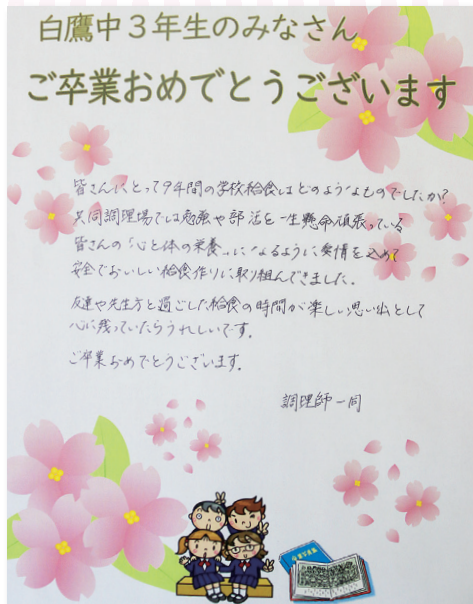 白鷹中３年生のみなさん
ご卒業おめでとうございます
皆さんにとって9年間の学校給食はどのようなものでしたか?
共同調理場では勉強や部活を一生懸命頑張っている
皆さんの「心と体の栄養」になるように愛情を込めて
安全でおいしい給食作りに取り組んできました。
友達や先生方と過ごした給食の時間が楽しい思い出として
心に残っていたらうれしいです。
ご卒業おめでとうございます。
調理師一同